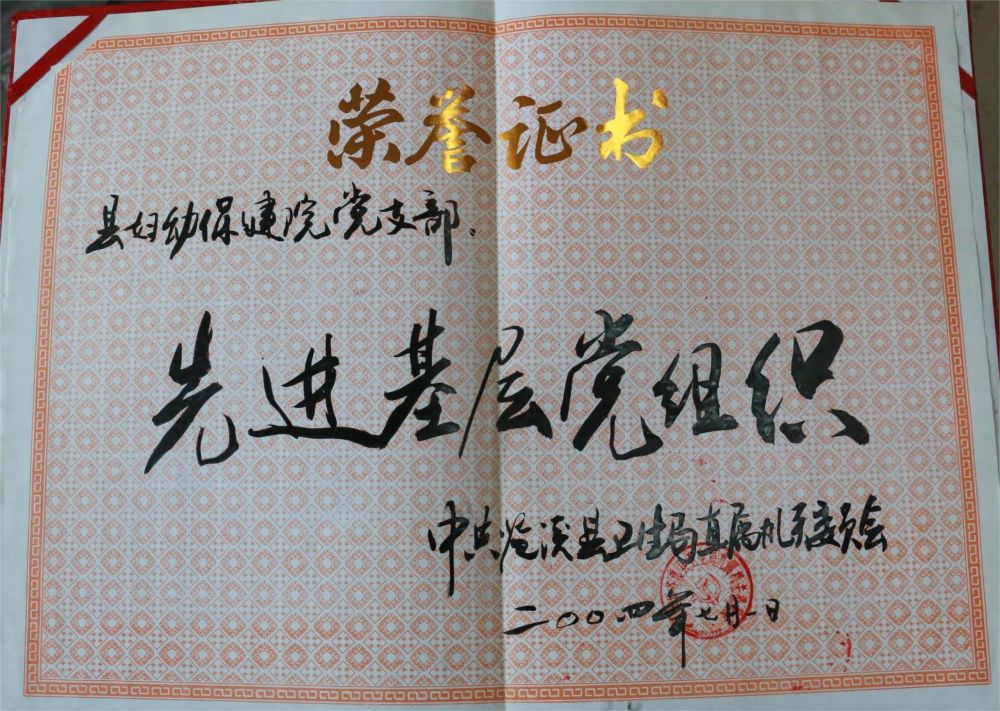 荣誉证书
县妇幼保健院党支部:
先进基层党组织
中共苍溪县卫生局直属机关委员会
二〇〇四年七月一日